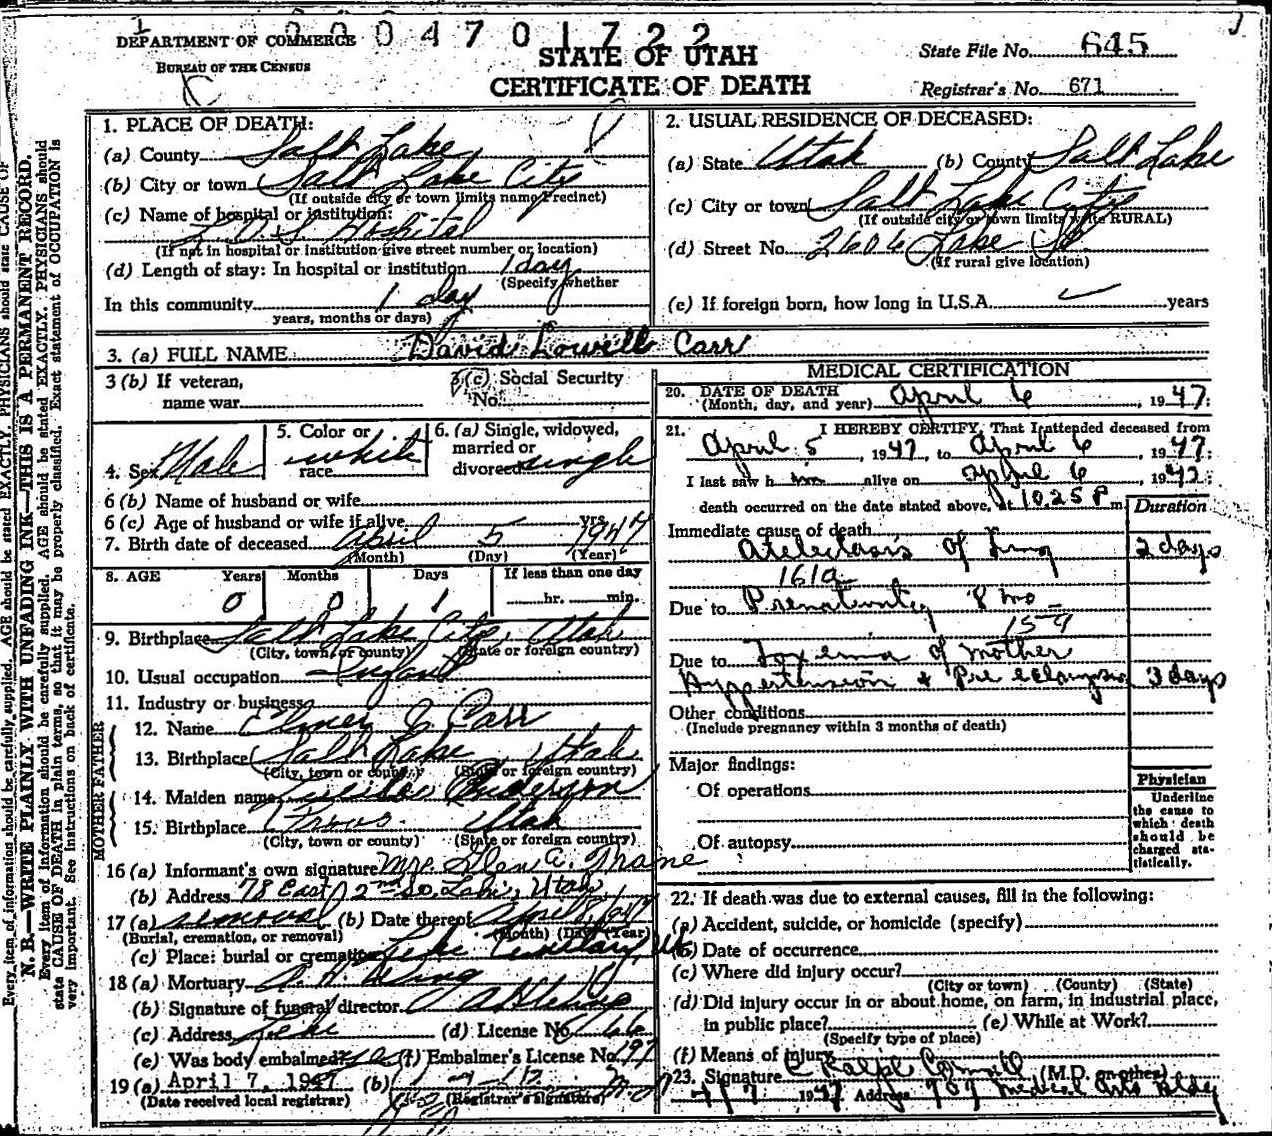 0004701722
DEPARTMENT OF COMMERCE
BUREAU OF THE CENSUS
STATE OF UTAH
CERTIFICATE OF DEATH
State File No. 645
Registrar's No. 671
1. PLACE OF DEATH:
(a) County Salt Lake
(b) City or town Salt Lake City
(If outside city or town limits name Precinct)
(c) Name of hospital or institution:
L.D.S. Hospital
(If not in hospital or institution give street number or location)
(d) Length of stay: In hospital or institution 1 day
(Specify whether
In this community 1 day
years, months or days)
2. USUAL RESIDENCE OF DECEASED:
(a) State Utah (b) County Salt Lake
(c) City or town Salt Lake City
(If outside city or town limits write RURAL)
(d) Street No. 2606 Lake St
(If rural give location)
(e) If foreign born, how long in U.S.A. years
3. (a) FULL NAME David Lowell Carr
3 (b) If veteran,
name war
3 (c) Social Security
No.
4. Sex Male
5. Color or
race white
6. (a) Single, widowed,
married or
divorced single
6 (b) Name of husband or wife
6 (c) Age of husband or wife if alive yrs.
7. Birth date of deceased April 5 1947
(Month) (Day) (Year)
8. AGE Years Months Days If less than one day
0 0 1 hr. min.
9. Birthplace Salt Lake City, Utah
(City, town, or county) (State or foreign country)
10. Usual occupation Infant
11. Industry or business
FATHER
12. Name Elmer Carr
13. Birthplace Salt Lake Utah
(City, town or county) (State or foreign country)
MOTHER
14. Maiden name Anderson
15. Birthplace Provo Utah
(City, town or county) (State or foreign country)
16 (a) Informant's own signature Mrs. Glen A. Thane
(b) Address 78 East 2nd So. Lehi, Utah
17 (a) removal (b) Date thereof April 8, 1947
(Burial, cremation, or removal) (Month) (Day) (Year)
(c) Place: burial or cremation Lehi Cemetery, Ut
18 (a) Mortuary
(b) Signature of funeral director
(c) Address Lehi (d) License No. 66
(e) Was body embalmed? (f) Embalmer's License No. 197
19 (a) April 7, 1947 (b)
(Date received local registrar) (Registrar's signature)
MEDICAL CERTIFICATION
20. DATE OF DEATH
(Month, day, and year) April 6, 1947.
21. I HEREBY CERTIFY, That I attended deceased from
April 5, 1947, to April 6, 1947;
I last saw him alive on April 6, 1947;
death occurred on the date stated above, at 10.25 P m
Duration
Immediate cause of death
Atelectasis of Lung 2 days
161a
Due to Prematurity 8 mo
159
Due to Toxemia of mother
Hypertension + Pre eclampsia 3 days
Other conditions
(Include pregnancy within 3 months of death)
Major findings:
Of operations
Of autopsy
Physician
Underline
the cause to
which death
should be
charged sta-
tistically.
22. If death was due to external causes, fill in the following:
(a) Accident, suicide, or homicide (specify)
(b) Date of occurrence
(c) Where did injury occur?
(City or town) (County) (State)
(d) Did injury occur in or about home, on farm, in industrial place,
in public place? (e) While at Work?
(Specify type of place)
(f) Means of injury
23. Signature E Ralph Cornwall (M.D. or other)
4/7 1947 Address 707 Medical Arts Bldg
N. B.—WRITE PLAINLY WITH UNFADING INK—THIS IS A PERMANENT RECORD.
Every item of information should be carefully supplied. AGE should be stated EXACTLY. PHYSICIANS should
state CAUSE OF DEATH in plain terms, so that it may be properly classified. Exact statement of OCCUPATION is
very important. See instructions on back of certificate.
Every item of information should be carefully supplied. AGE should be stated EXACTLY. PHYSICIANS should state CAUSE OF